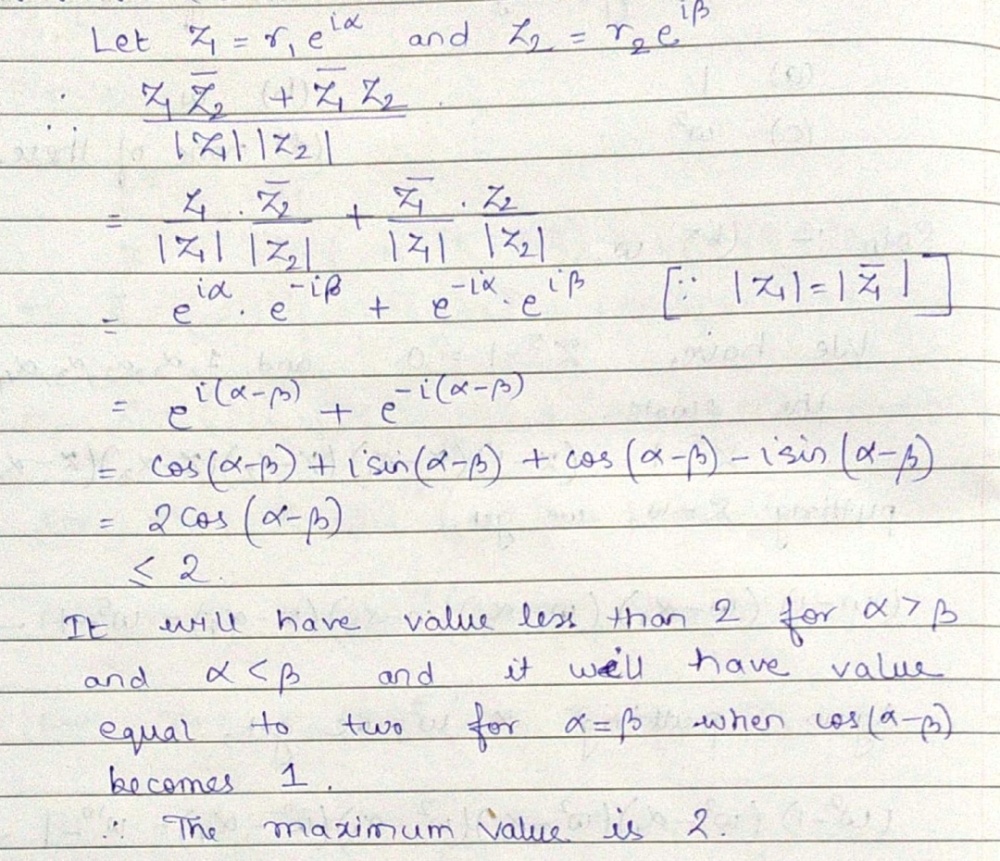 Let z₁ = r₁ e^{iα} and z₂ = r₂ e^{iβ}
∴ (z₁ z̄₂ + z̄₁ z₂) / (|z₁| |z₂|)
= z₁/|z₁| · z̄₂/|z₂| + z̄₁/|z₁| · z₂/|z₂|
= e^{iα} · e^{-iβ} + e^{-iα} · e^{iβ} [∵ |z₁| = |z̄₁|]
= e^{i(α-β)} + e^{-i(α-β)}
= cos(α-β) + i sin(α-β) + cos (α-β) - i sin (α-β)
= 2 cos (α-β)
≤ 2.
It will have value less than 2 for α > β
and α < β and it will have value
equal to two for α = β when cos(α-β)
becomes 1.
∴ The maximum value is 2.